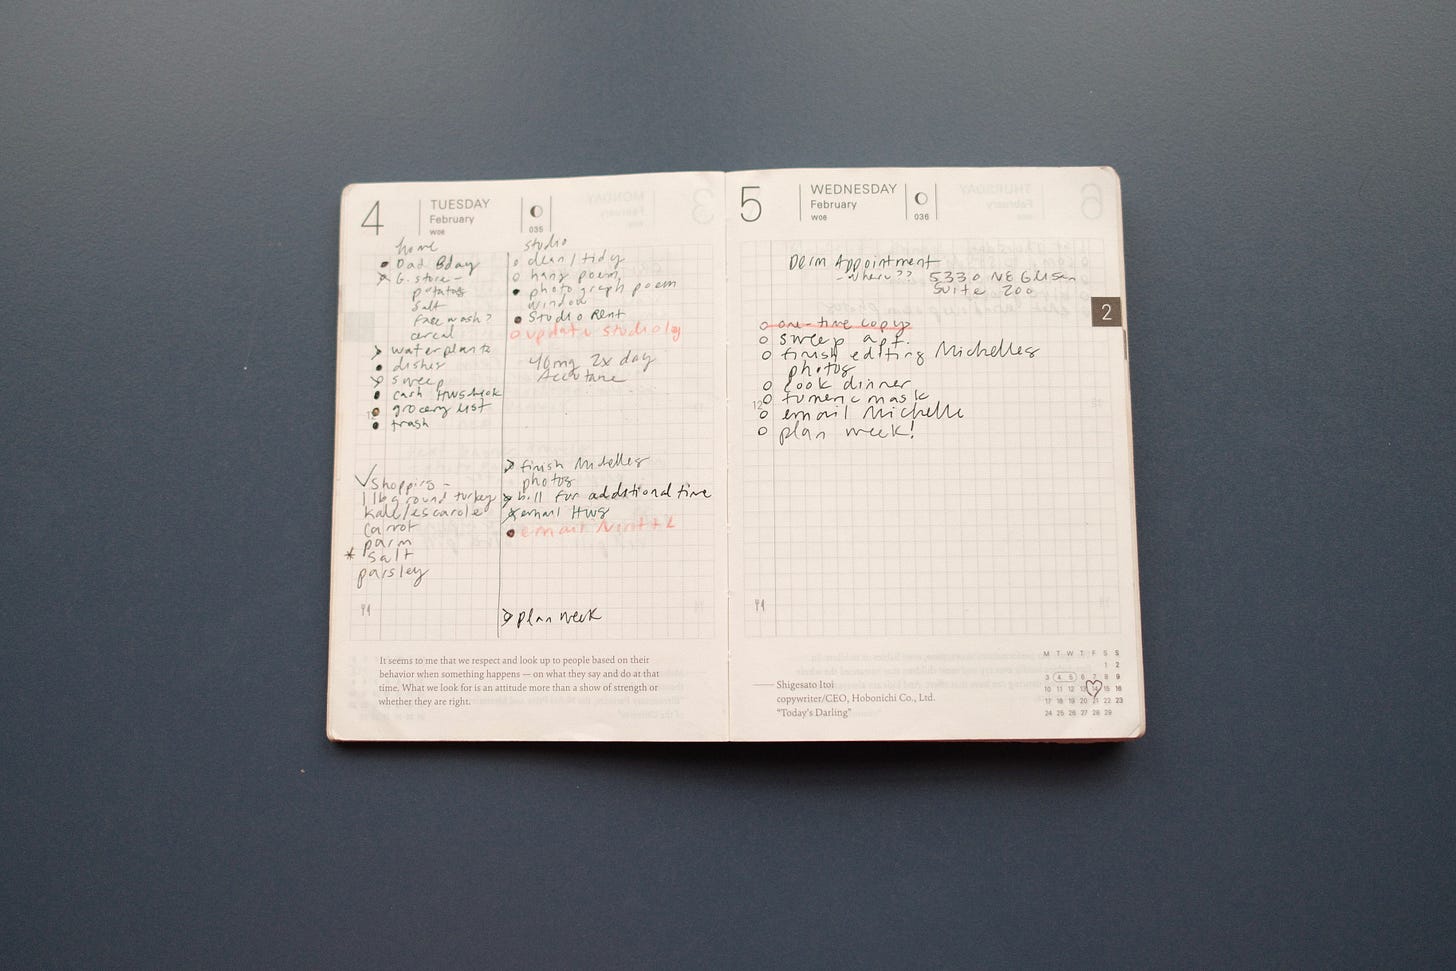 4
TUESDAY
February
woe
035
home
Dad Bday
G. store -
potatos
salt
face wash?
cereal
water plants
dishes
sweep
cash HWS
grocery list
trash
Shopping -
1 lb ground turkey
kale/escarole
carrot
parm
* salt
parsley
studio
clean/tidy
hang poem
photograph poem
window
Studio Rent
update studiolog
40mg 2x day
Accutane
finish Michelles
photos
bill for additional time
email HWS
email
plan week
It seems to me that we respect and look up to people based on their
behavior when something happens — on what they say and do at that
time. What we look for is an attitude more than a show of strength or
whether they are right.
5
WEDNESDAY
February
woe
036
Derm Appointment
- where?? 5330 NE Glisan
Suite 200
2
one-time copy
sweep apt.
finish editing Michelles
photos
cook dinner
12
tumeric mask
email Michelle
plan week!
Shigesato Itoi
copywriter/CEO, Hobonichi Co., Ltd.
"Today's Darling"
M T W T F S S
1 2
3 4 5 6 7 8 9
10 11 12 13 14 15 16
17 18 19 20 21 22 23
24 25 26 27 28 29